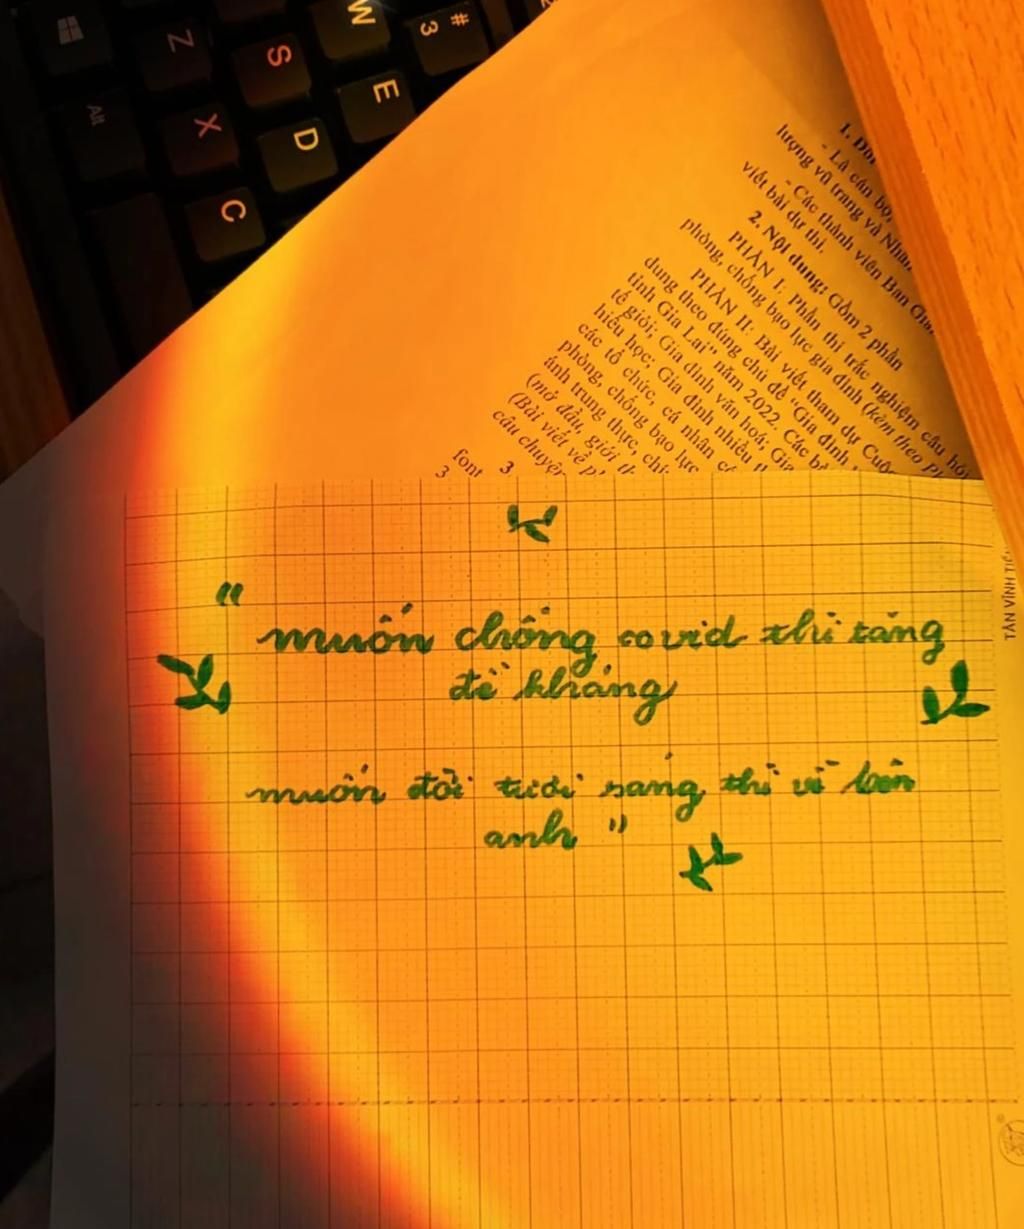 W
#
3
Z
S
E
Alt
X
D
C
1.
- Là cán bộ,
lượng vũ trang và Nhân
- Các thành viên Ban
viết bài dự thi.
2. Nội dung: Gồm 2 phần
PHẦN I: Phần thi trắc nghiệm câu hỏi
phòng, chống bạo lực gia đình (kèm theo
PHẦN II: Bài viết tham dự
dung theo đúng chủ đề "Gia đình
tỉnh Gia Lai" năm 2022. Các
tế giới; Gia đình văn hoá; Gia
hiếu học; Gia đình nhiều
các tổ chức, cá nhân
phòng, chống bạo lực
ánh trung thực,
(mở đầu, giới
(Bài viết về
câu chuyện
font 3
3
"
muốn chống covid thì tăng
đề kháng
muốn đời tươi sáng thì về bên
anh "
TÂN VĨNH